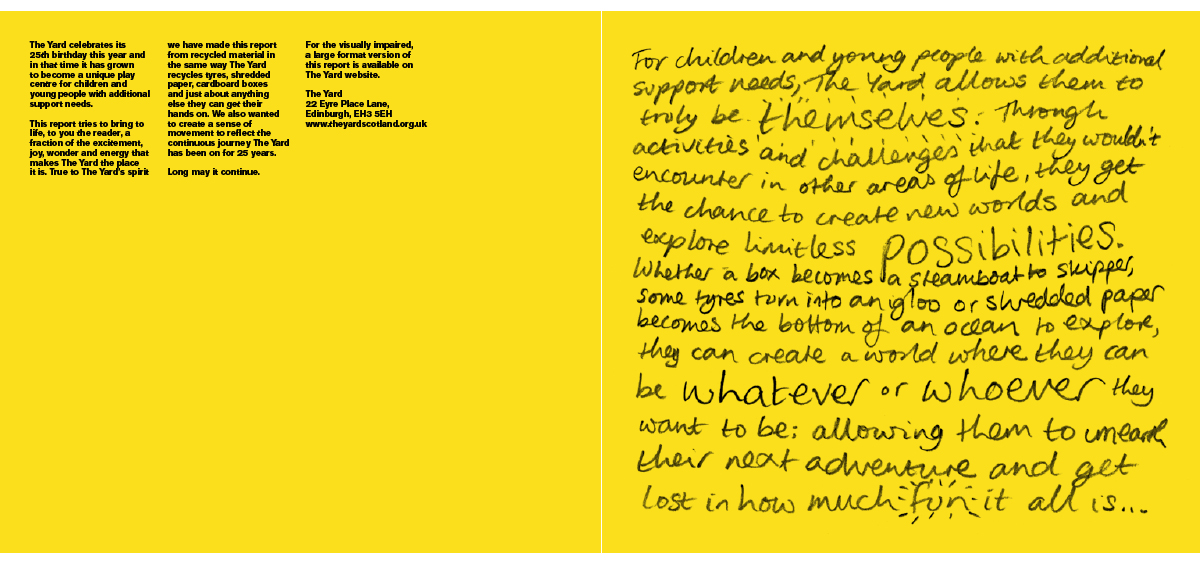 The Yard celebrates its
25th birthday this year and
in that time it has grown
to become a unique play
centre for children and
young people with additional
support needs.
This report tries to bring to
life, to you the reader, a
fraction of the excitement,
joy, wonder and energy that
makes The Yard the place
it is. True to The Yard's spirit
we have made this report
from recycled material in
the same way The Yard
recycles tyres, shredded
paper, cardboard boxes
and just about anything
else they can get their
hands on. We also wanted
to create a sense of
movement to reflect the
continuous journey The Yard
has been on for 25 years.
Long may it continue.
For the visually impaired,
a large format version of
this report is available on
The Yard website.
The Yard
22 Eyre Place Lane,
Edinburgh, EH3 5EH
www.theyardscotland.org.uk
For children and young people with additional
support needs, The Yard allows them to
truly be themselves. Through
activities and challenges that they wouldn't
encounter in other areas of life, they get
the chance to create new worlds and
explore limitless possibilities.
Whether a box becomes a steamboat to skipper,
some tyres turn into an igloo or shredded paper
becomes the bottom of an ocean to explore,
they can create a world where they can
be whatever or whoever they
want to be; allowing them to unearth
their next adventure and get
lost in how much fun it all is...